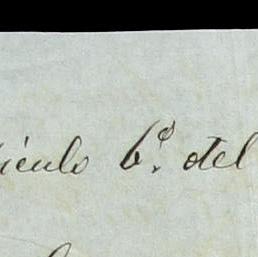 ículo 6º. del